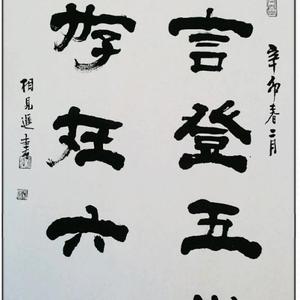 辛卯春二月
言登五
游在六
相見進書